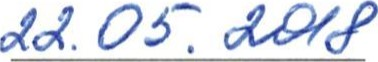 22. 05. 2018